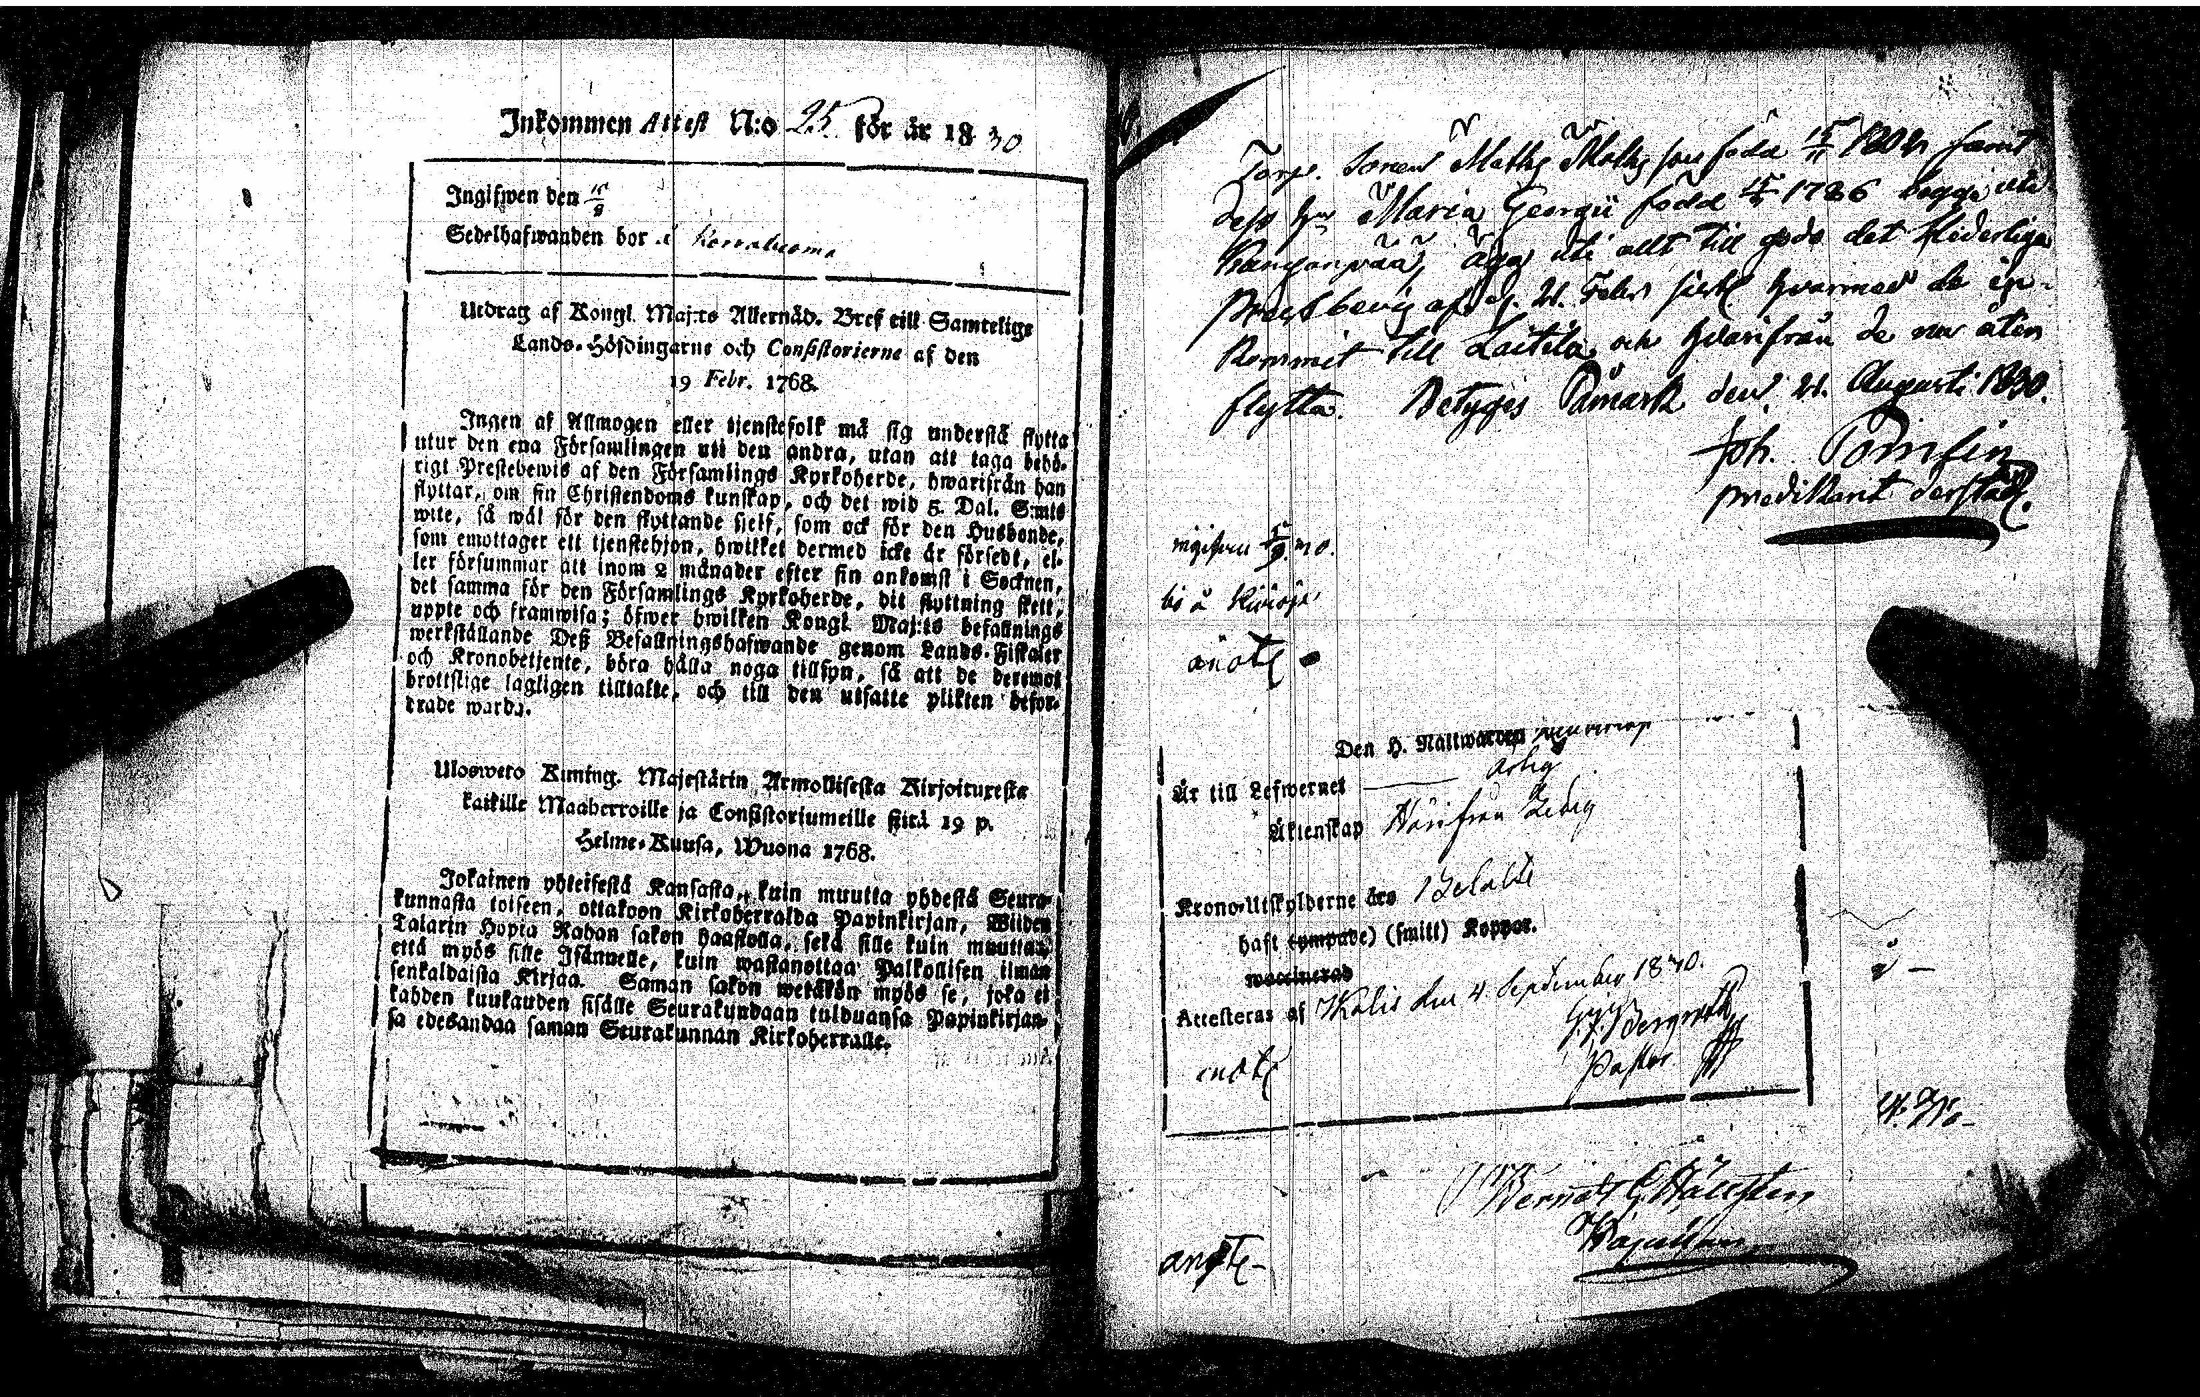 Inkommen Attest N:o 25 för år 1830
Ingifwen den 15/9
Sedelhafwanden bor i
Utdrag af Kongl. Maj:ts Allernåd. Bref till Samtelige
Lands-Höfdingarne och Consistorierne af den
19 Febr. 1768.
Ingen af Allmogen eller tjenstefolk må sig understå flytta
utur den ena Församlingen uti den andra, utan att taga behö-
rigt Prestebewis af den Församlings Kyrkoherde, hwarifrån han
flyttar, om sin Christendoms kunskap, och det wid 5. Dal. S:mts
wite, så wäl för den flyttande sjelf, som ock för den Husbonde,
som emottager ett tjenstehjon, hwilket dermed icke är försedt, el-
ler försummar att inom 2 månader efter sin ankomst i Socknen,
det samma för den Församlings Kyrkoherde, dit flyttning skett,
uppte och framwisa; öfwer hwilken Kongl. Maj:ts befallnings
werkställande Deß Befallningshafwande genom Lands-Fiskaler
och Kronobetjente, böra hålla noga tillsyn, så att de deremot
brottslige lagligen tilltalte, och till den utsatte plikten befor-
drade warda.
Ulosweto Kuning. Majestätin Armollisesta Kirjoituxesta
kaikille Maaherroille ja Consistoriumeille siitä 19 p.
Helme-Kuusa, Wuona 1768.
Jokainen yhteisestä Kansasta, kuin muutta yhdestä Seura-
kunnasta toiseen, ottakoon Kirkoherralda Papinkirjan, Wiiden
Talarin Hopia Rahan sakon haastolla, sekä sille kuin muuttaa,
että myös sille Isännelle, kuin wastanottaa Palkollisen ilman
senkaldaista Kirjaa. Saman sakon wetäkön myös se, joka ei
kahden kuukauden sisälle Seurakundaan tulduansa Papinkirjan-
sa edesandaa saman Seurakunnan Kirkoherralle.
Torp. Sonen Matts Mattsson född 15/11 180 samt
dess Hu Maria Georgii född 15/5 1786 begge ifrån
äga uti allt till godo det hederliga
Prestbevis af d. 21. Febr. sistl. hvarmed de in-
kommit till Laitila och hvarifrån de nu åter
flytta. Betyges Påmark den 21. Augusti 1830.
Joh.
predikant derstäd.
ingifven 15/9 30.
bo å
anote
Den H. Nattwarden
Är till Lefwernet arlig
Äktenskap Härifrån Ledig
Krono-Utskylderne års Betalte
haft (ympade) (smitt) Koppor.
waccinerad
Attesteras af den 4 September 1830.
Bergroth
Pastor
anote
anote